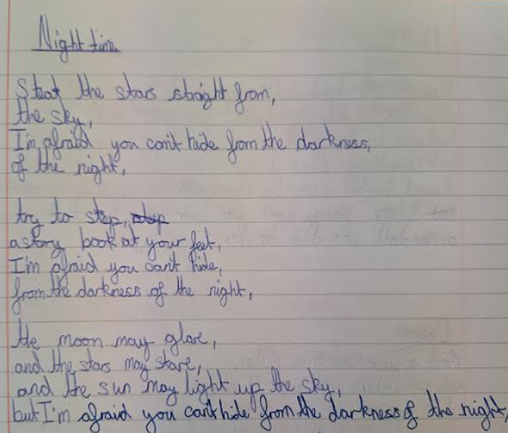 Night time
Steal the stars straight from,
the sky,
I'm afraid you can't hide from the darkness,
of the night,
try to step,
a story book at your feet,
I'm afraid you can't hide,
from the darkness of the night,
the moon may glare,
and the stars may stare,
and the sun may light up the sky,
but I'm afraid you can't hide from the darkness of the night,